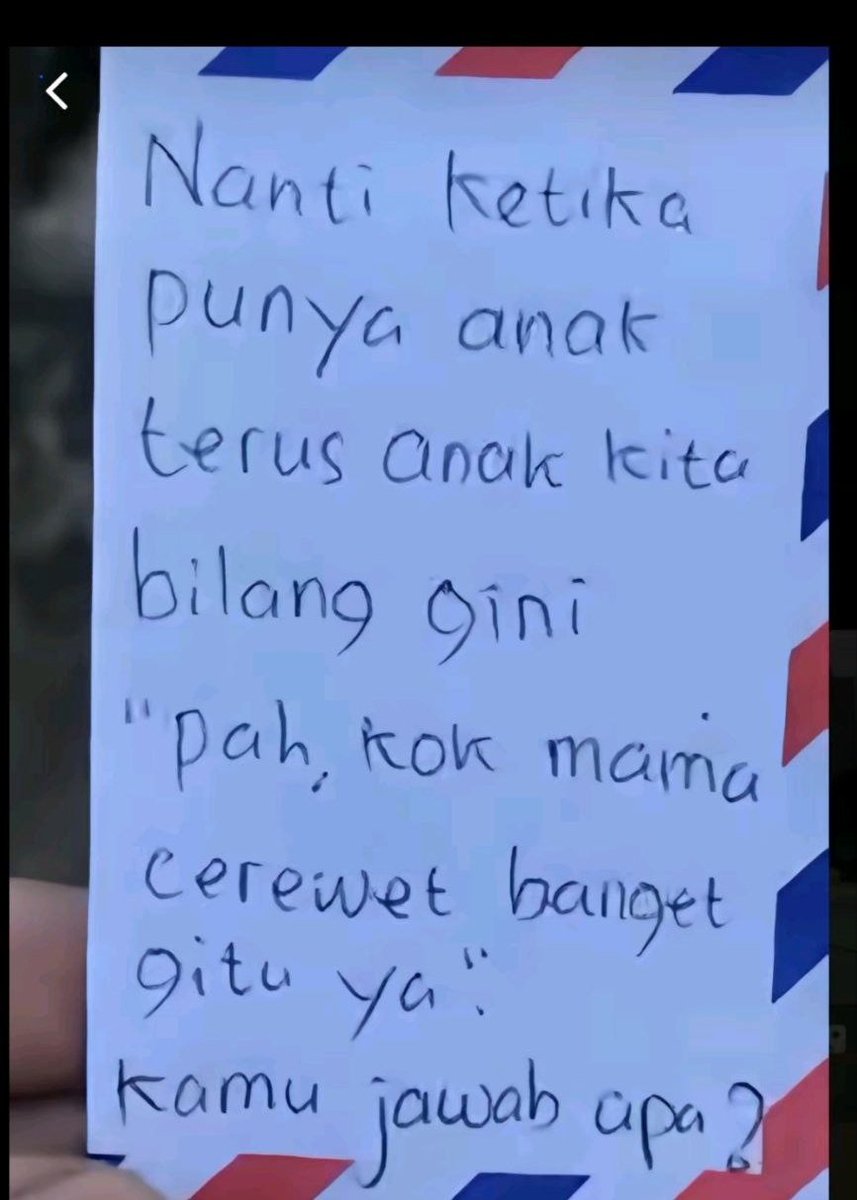 Nanti ketika
punya anak
terus anak kita
bilang gini
"pah, kok mama
cerewet banget
gitu ya".
kamu jawab apa?